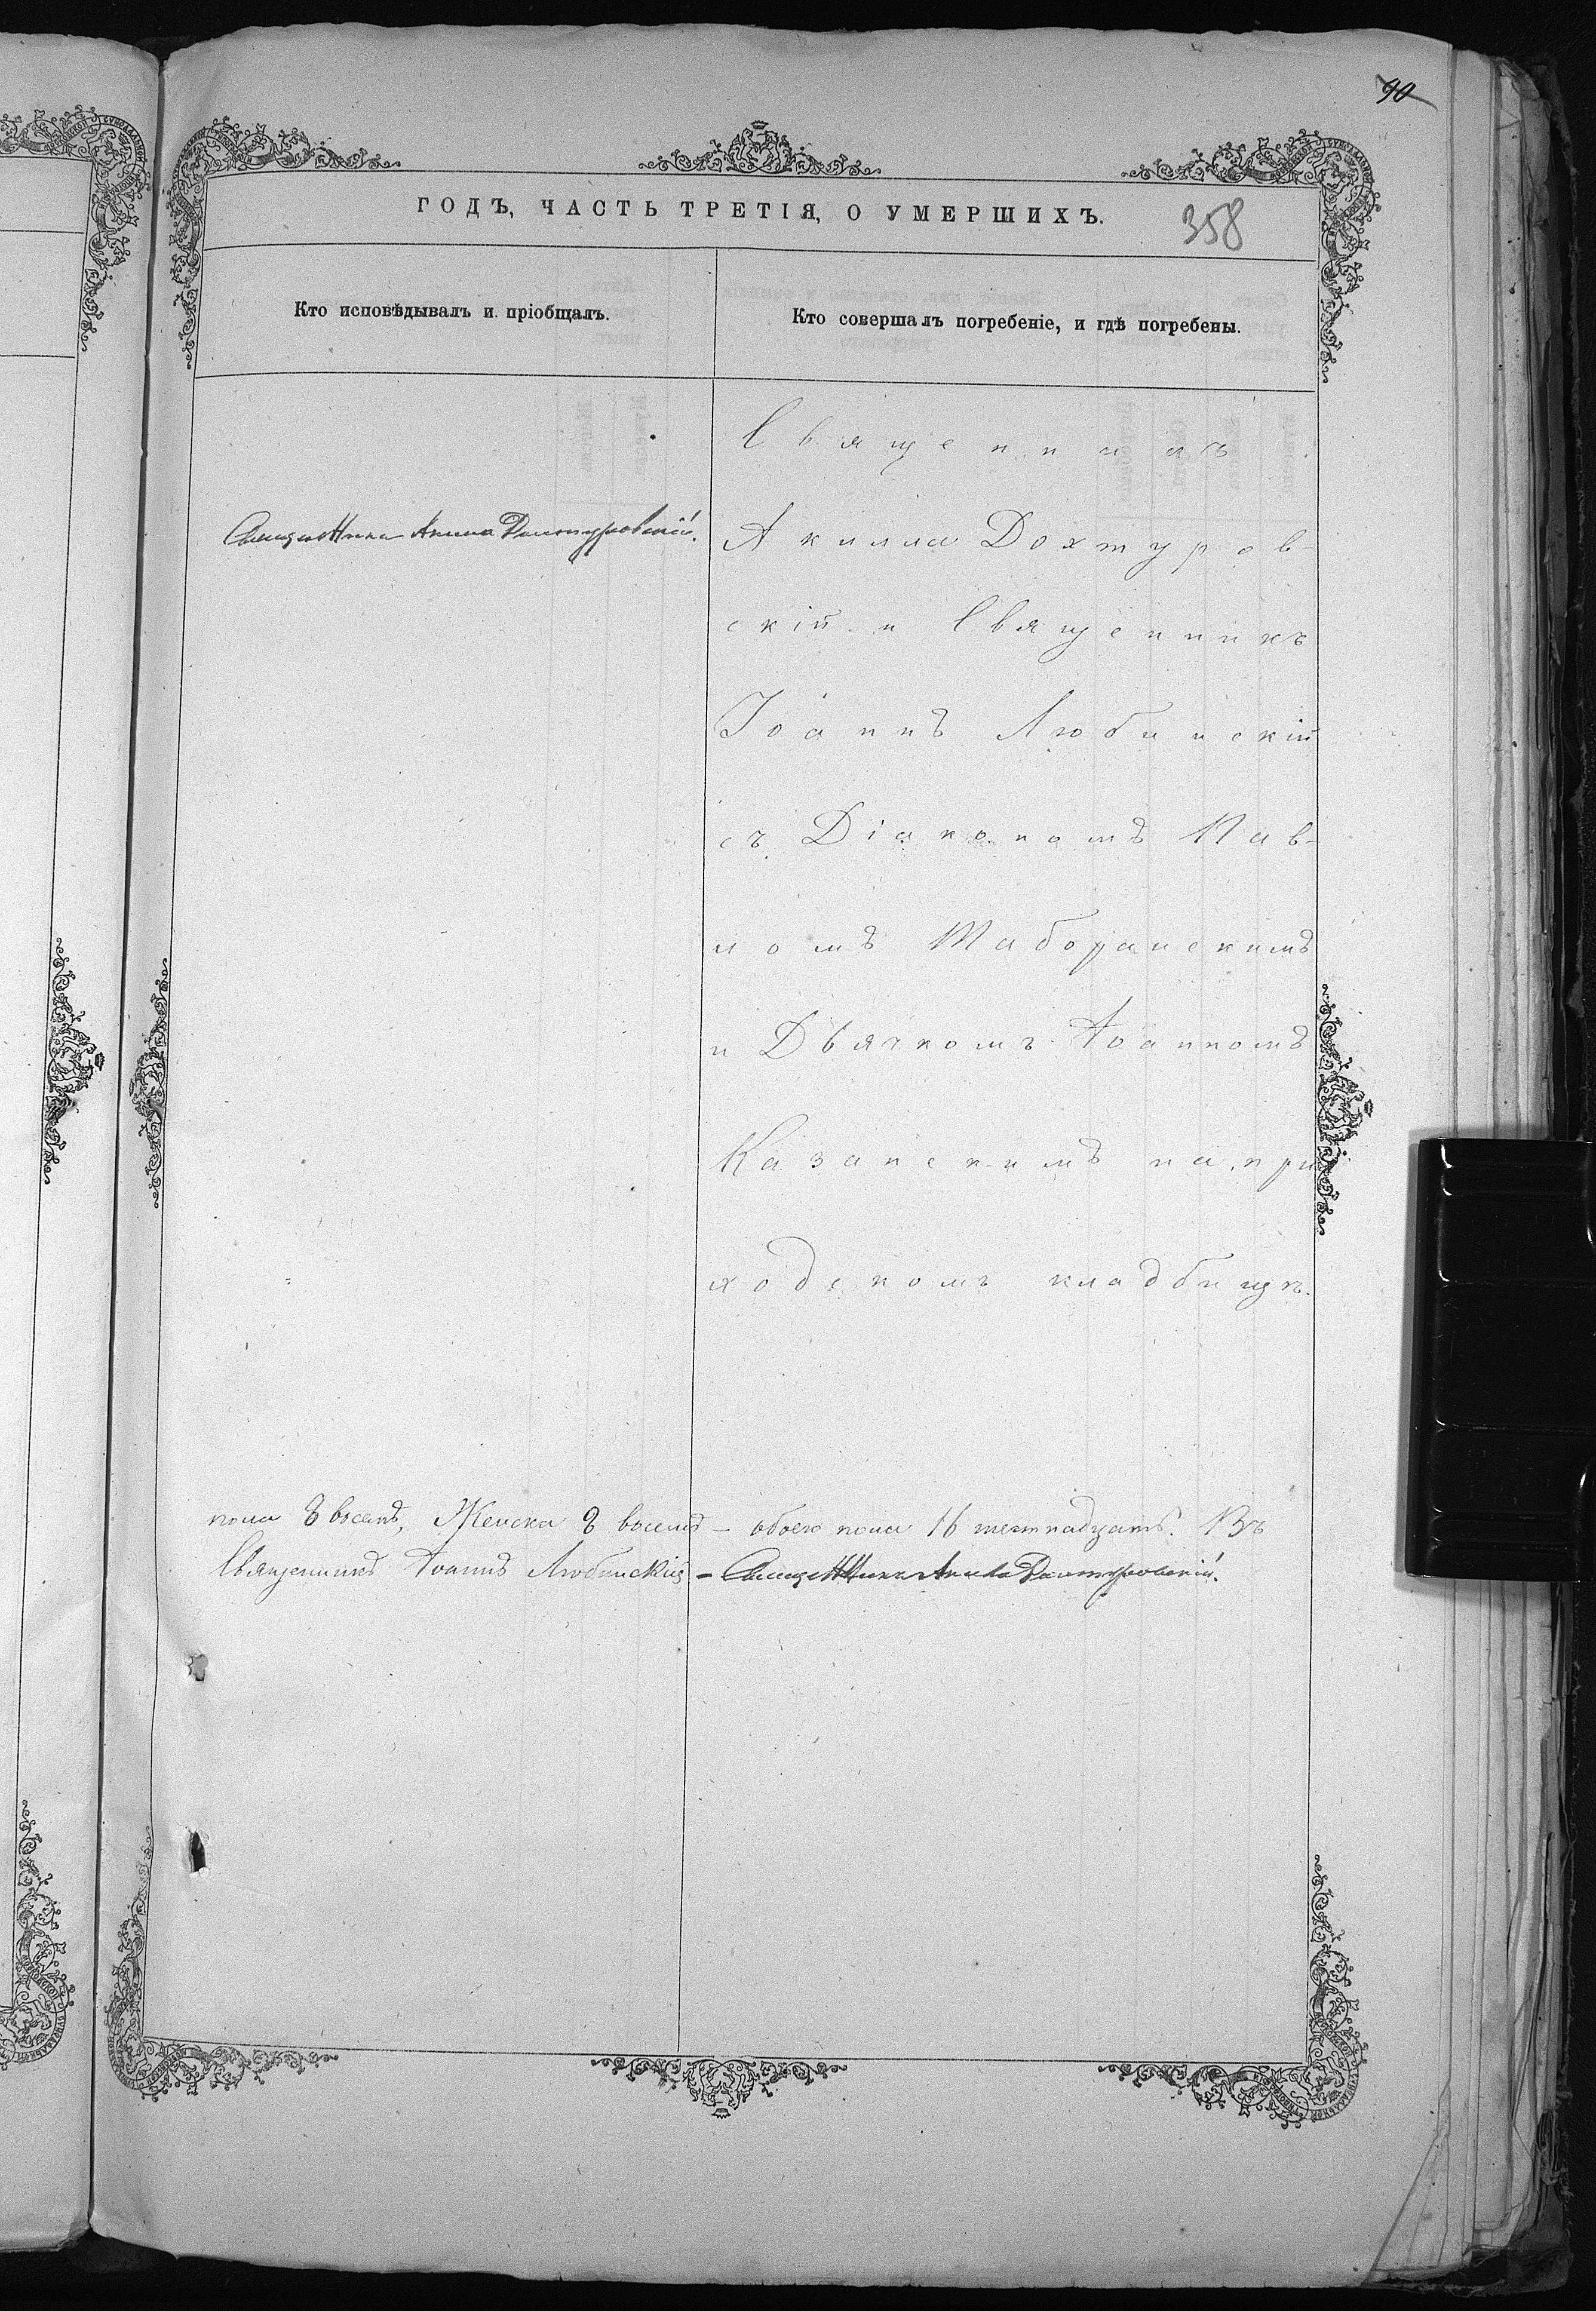 90
ГОДЪ, ЧАСТЬ ТРЕТІЯ, О УМЕРШИХЪ.
358
Кто исповѣдывалъ и пріобщалъ.
Кто совершалъ погребеніе, и гдѣ погребены.
Священникъ Акила Дохтуровскій.
Священникъ
Акилла Дохтуров-
скій и Священникъ
Іоаннъ Любинскій
съ Діакономъ Пав-
ломъ Таборанскимъ
и Дьячкомъ Іоанномъ
Казанскимъ на при
ходскомъ кладбищѣ.
пола 8 восемь, Женска 8 восемь – обоего пола 16 шестнадцать. Въ
Священникъ Іоаннъ Любинскій – Священникъ Акила Дохтуровскій.